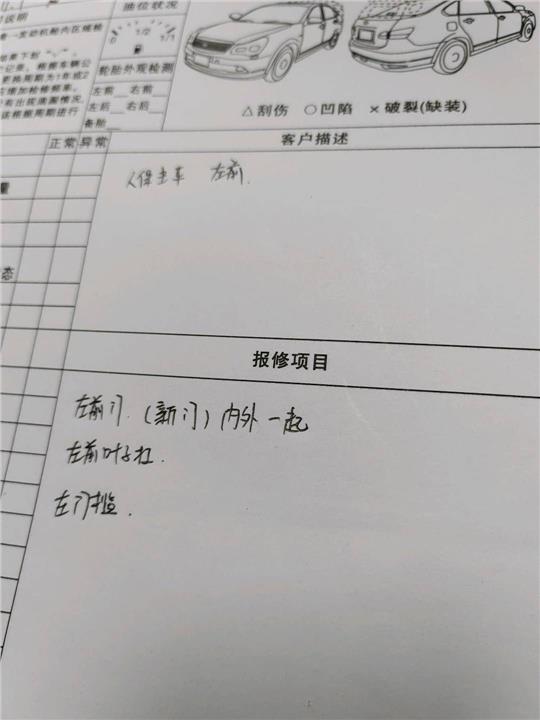 油位状况
说明
1/2
1/1
轮胎外观检测
左前__ 右前__
左后__ 右后__
备胎__
△刮伤 ○凹陷 ×破裂(缺装)
正常 异常
客户描述
人保主车 左前.
量
态
报修项目
左前门.(新门)内外一起
左前叶子杠.
左门槛.